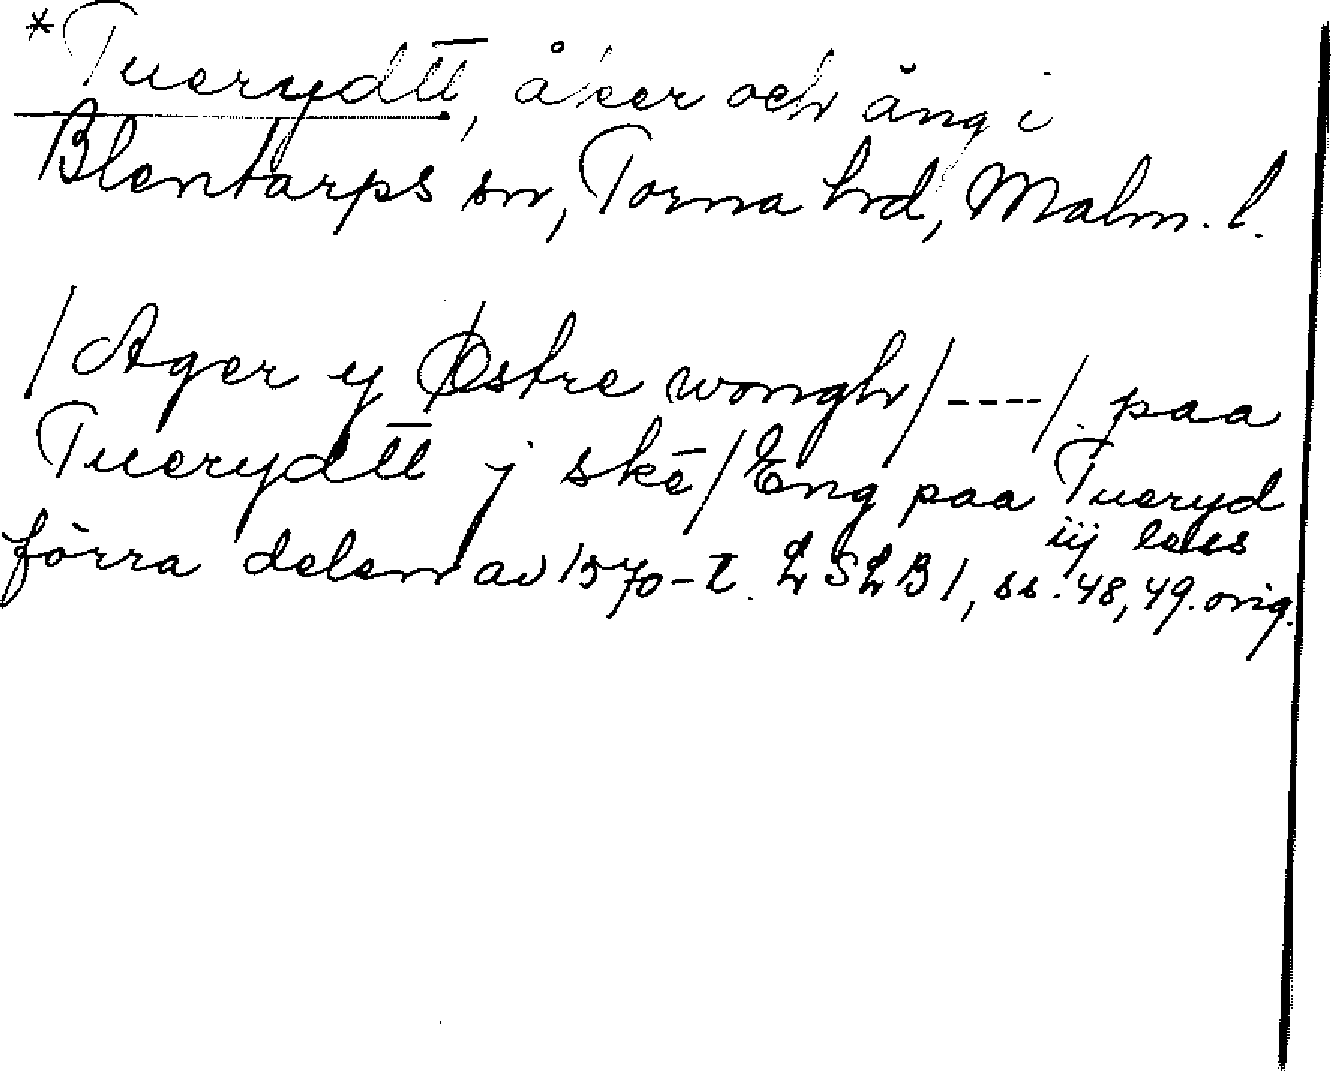 *Tueryd̅t̅t̅, åker och äng i
Blentarps sn, Torna hrd, Malm. l.
/Ager y Østre wongh/----/. paa
Tueryd̅t̅t̅ j skē/Eng paa Tueryd
iij less
förra delen av 1570-t. LSLB1, ss. 48, 49. orig.